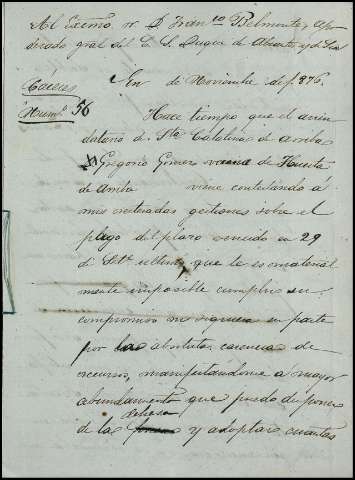 Al Excmo Sr D. Franco Belmonte, Apo-
derado gral del E. S. Duque de Abrantes y de Lin
Cáceres
En de Noviembre de 1,876.
Numo 56
Hace tiempo que el arren
datario de Sta Catalina de arriba
Gregorio Gomez de Huerta
de arriba viene contestando á
mis reiteradas gestiones sobre el
pago del plazo vencido en 29
de Stbre ultimo, que le es material
mente imposible cumplir su
compromiso ni siquiera en parte
por la absoluta carencia de
recursos, manifestandome a mayor
abundamiento que puedo disponer
dehesa
de la y adoptar cuantas